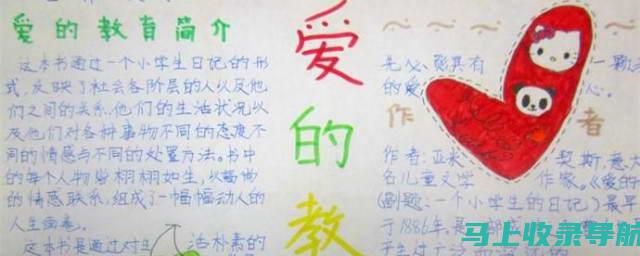 爱的教育简介
这本书通过一个小学生日记的形
式,反映了社会各阶层的人以及他
们之间的关系.他们的生活状况以
及他们对各种事物不同的态度不
同的情感与不同的处置方法。书中
的每个人物皆栩栩如生,以
的情感联系,组成了一幅幅动人的
人生画卷。
这本书是通过对
活朴素的
爱
的
教
具有
一颗
的爱
心。
作
者
作者:亚米
契斯,意大
名儿童文学
作家。《爱的
(副题:一个小学生的日记)最早
于1886年,是一部
马上收录导航